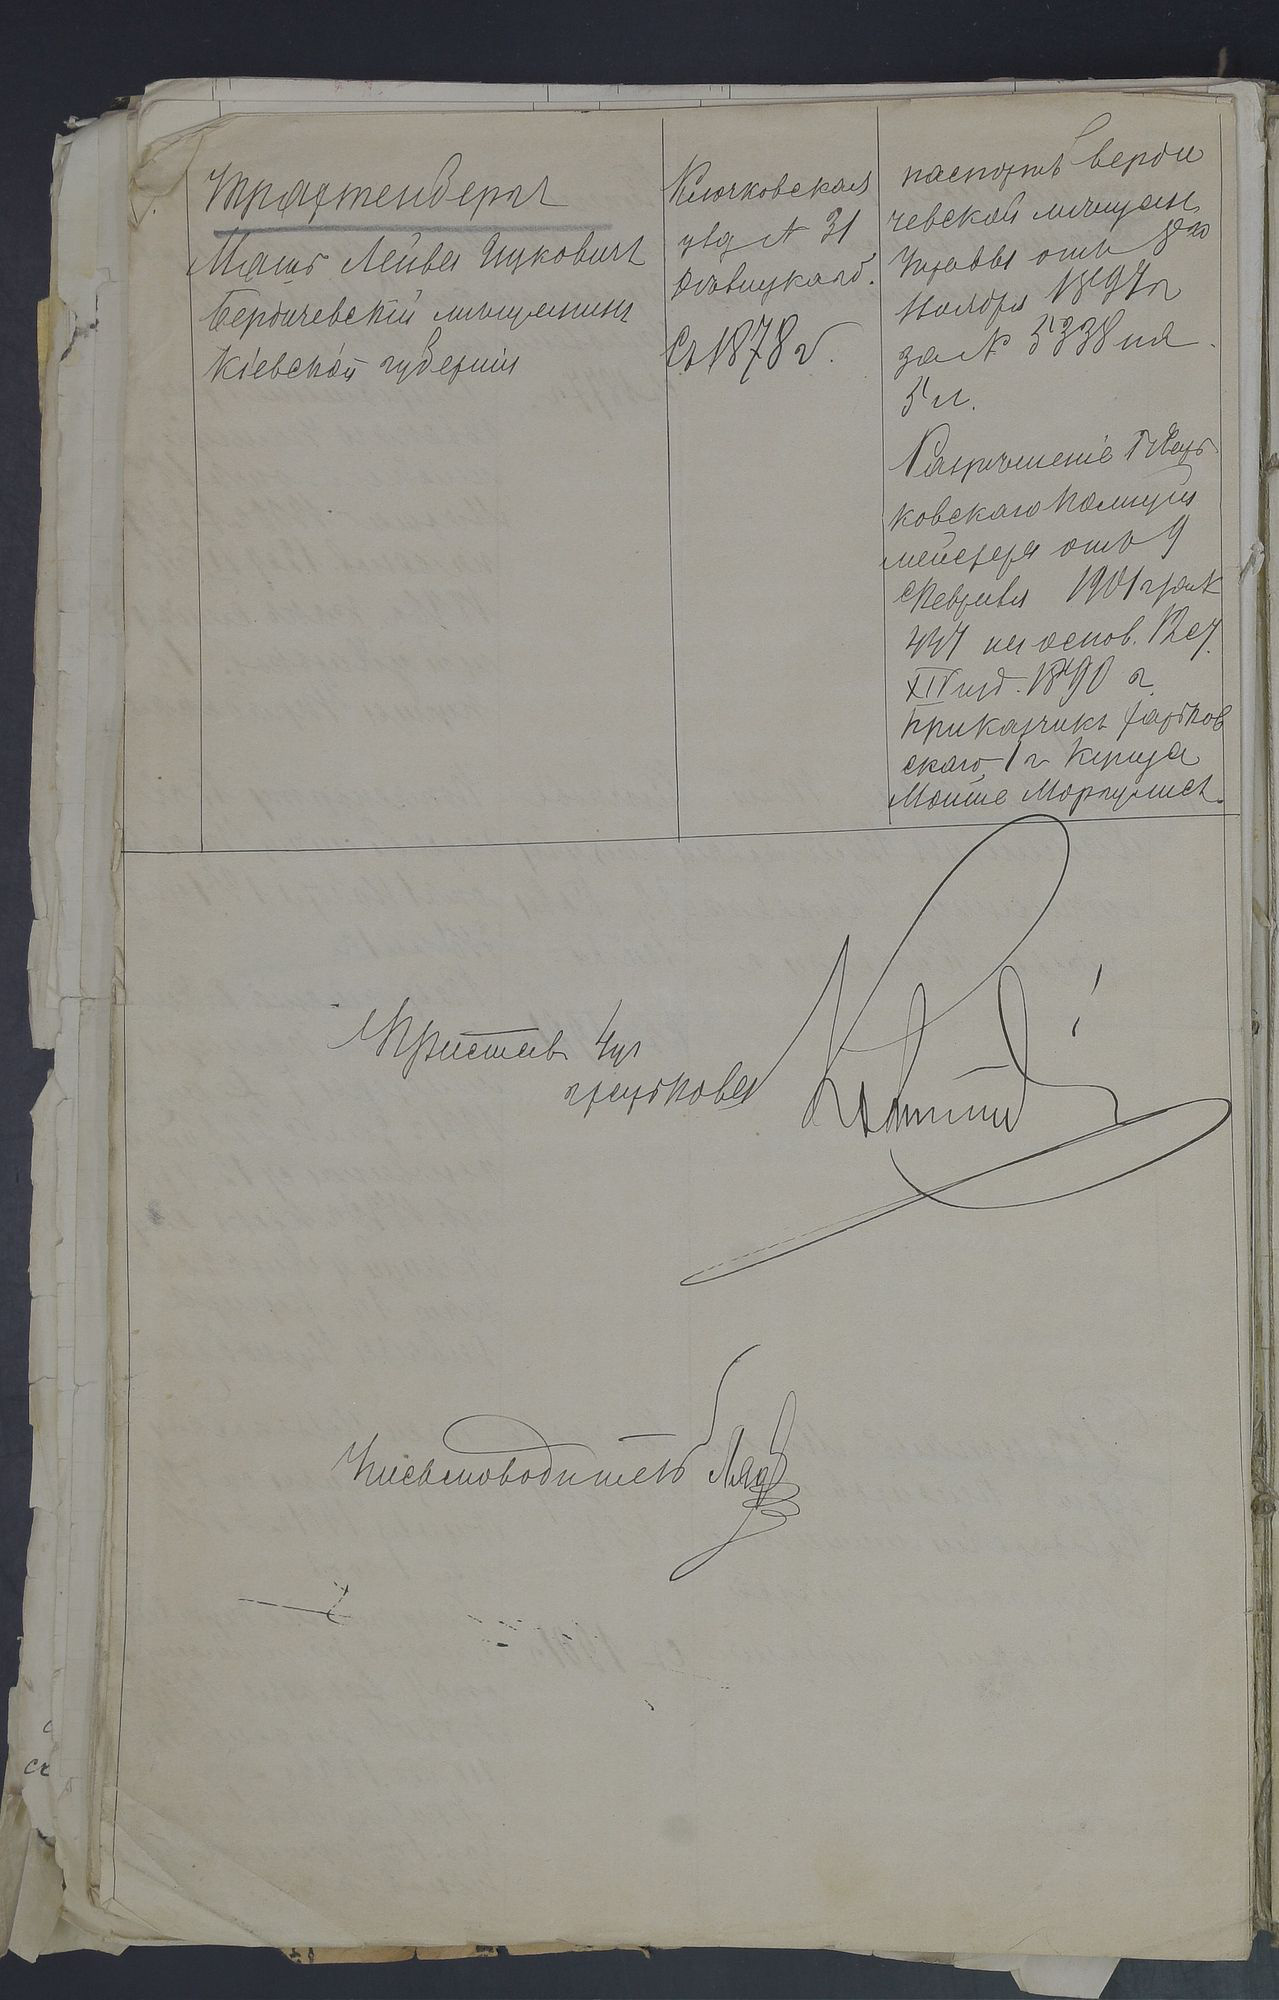 Трахтенбергъ
Мать Лейва Ицковичъ
Бердичевскій мѣщанинъ
Кіевской губерніи
Клочковская
улд № 31
Съ 1878 г.
паспортъ Берди
чевской мѣщан
Управы отъ 8го
Ноября 1897 г
за № 5338 на
5 л.
Разрѣшеніе Харь
ковскаго Полицій
мейстера отъ 9
Февраля 1901 г за №
447 на основ.
XIV изд. 1890 г
Приказчикъ Харьков
скаго 1 г Купца
Мойше Моргулисъ.
Приставъ 4 уч
г Харькова
Письмоводитель